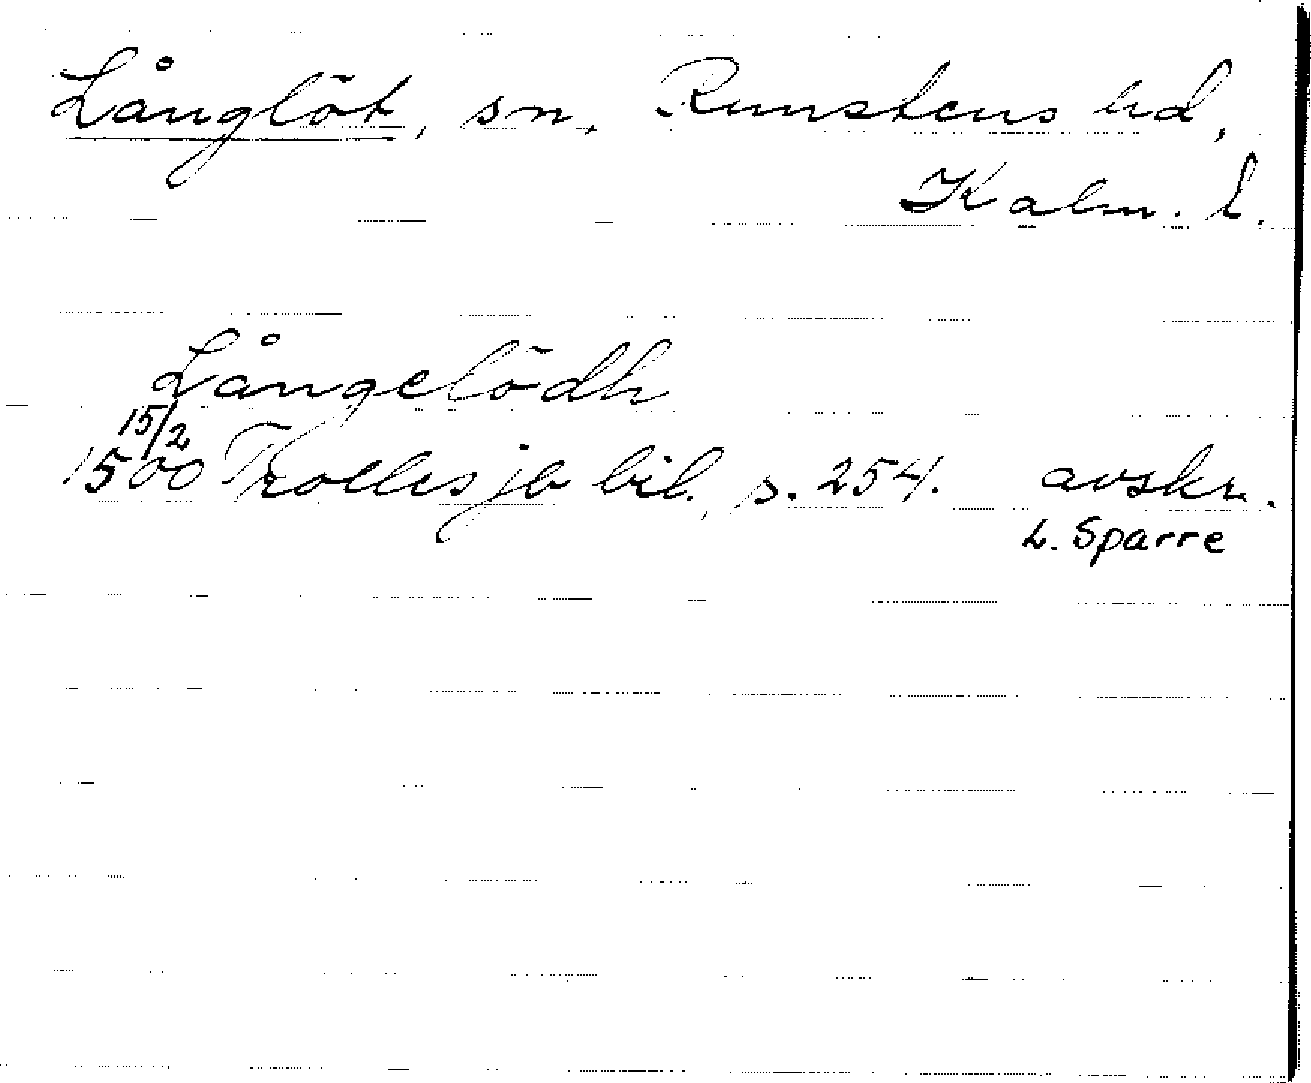 Långlöt, sn, Runstens hd,
Kalm. l.
Långelödh
15/2
1500 Trolles jb bil., s. 254. avskr.
L. Sparre